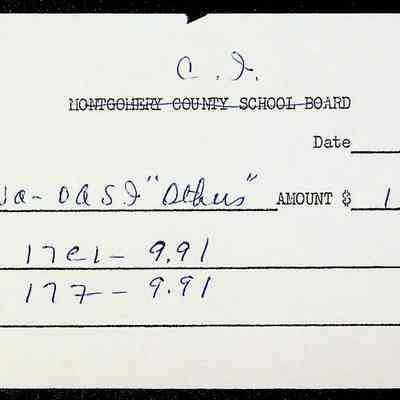 C. I.
MONTGOMERY COUNTY SCHOOL BOARD
Date
Va- OASI "Others" AMOUNT $ 1
17C1- 9.91
177- 9.91